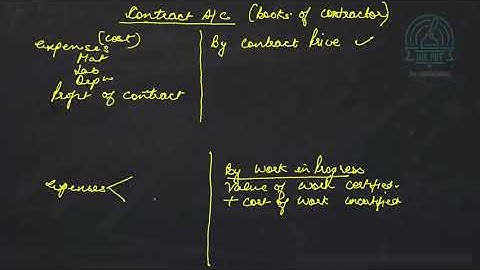 Contract A/c (books of contractor)
Expenses (cost)
Mat
Lab
Dep
Profit of contract
By contract Price ✓
Expenses
By Work in Progress
Value of work certified
+ cost of work uncertified